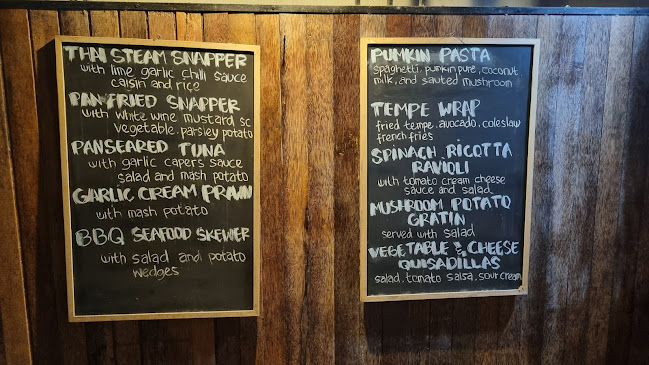 THAI STEAM SNAPPER
with lime garlic chilli sauce
caisin and rice
PANFRIED SNAPPER
with white wine mustard sc
vegetable. parsley potato
PANSEARED TUNA
with garlic capers sauce
salad and mash potato
GARLIC CREAM PRAWN
with mash potato
BBQ SEAFOOD SKEWER
with salad and potato
wedges
PUMKIN PASTA
spaghetti, pumkin pure, coconut
milk, and sauted mushroom
TEMPE WRAP
fried tempe. avocado. coleslaw
french fries
SPINACH RICOTTA
RAVIOLI
with tomato cream cheese
sauce and salad
MUSHROOM POTATO
GRATIN
served with salad
VEGETABLE & CHEESE
QUISADILLAS
salad, tomato salsa, sour cream